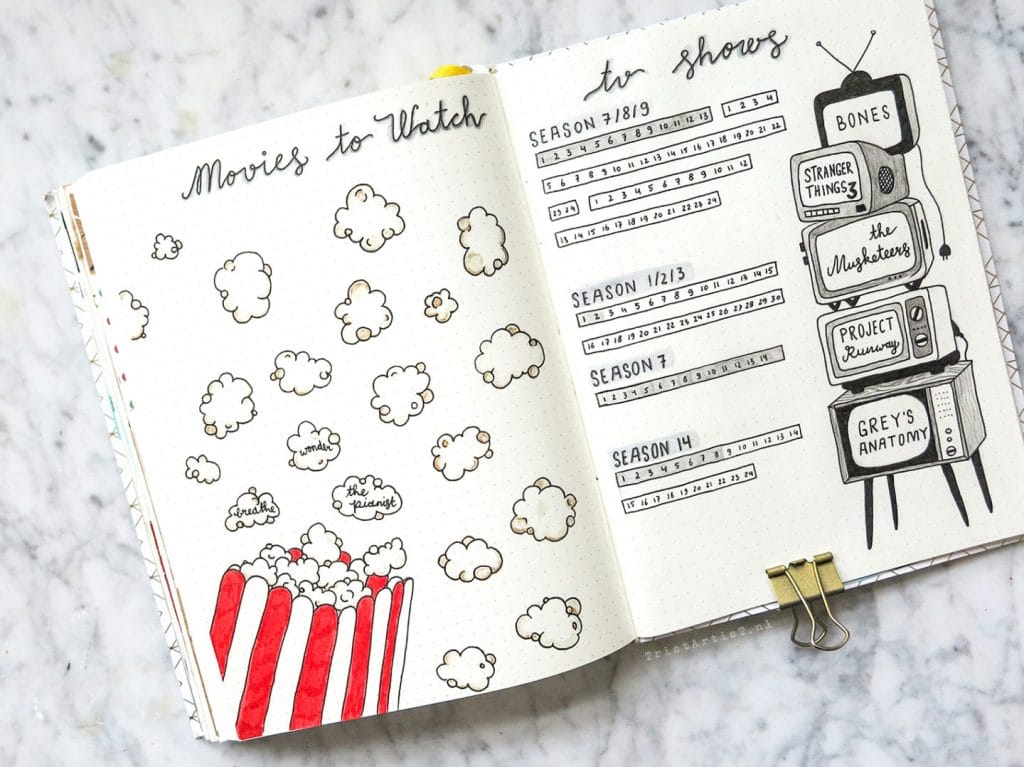 Movies to Watch
wonder
the
pianist
breathe
tv shows
SEASON 7/8/9
1 2 3 4 5 6 7 8 9 10 11 12 13 1 2 3 4
5 6 7 8 9 10 11 12 13 14 15 16 17 18 19 20 21 22
23 24 1 2 3 4 5 6 7 8 9 10 11 12
13 14 15 16 17 18 19 20 21 22 23 24
SEASON 1/2/3
1 2 3 4 5 6 7 8 9 10 11 12 13 14 15
16 17 18 19 20 21 22 23 24 25 26 27 28 29 30
SEASON 7
1 2 3 4 5 6 7 8 9 10 11 12 13 14
SEASON 14
1 2 3 4 5 6 7 8 9 10 11 12 13 14
15 16 17 18 19 20 21 22 23 24
BONES
STRANGER
THINGS 3
the
Musketeers
PROJECT
Runway
GREY'S
ANATOMY
TristArtisT.nl